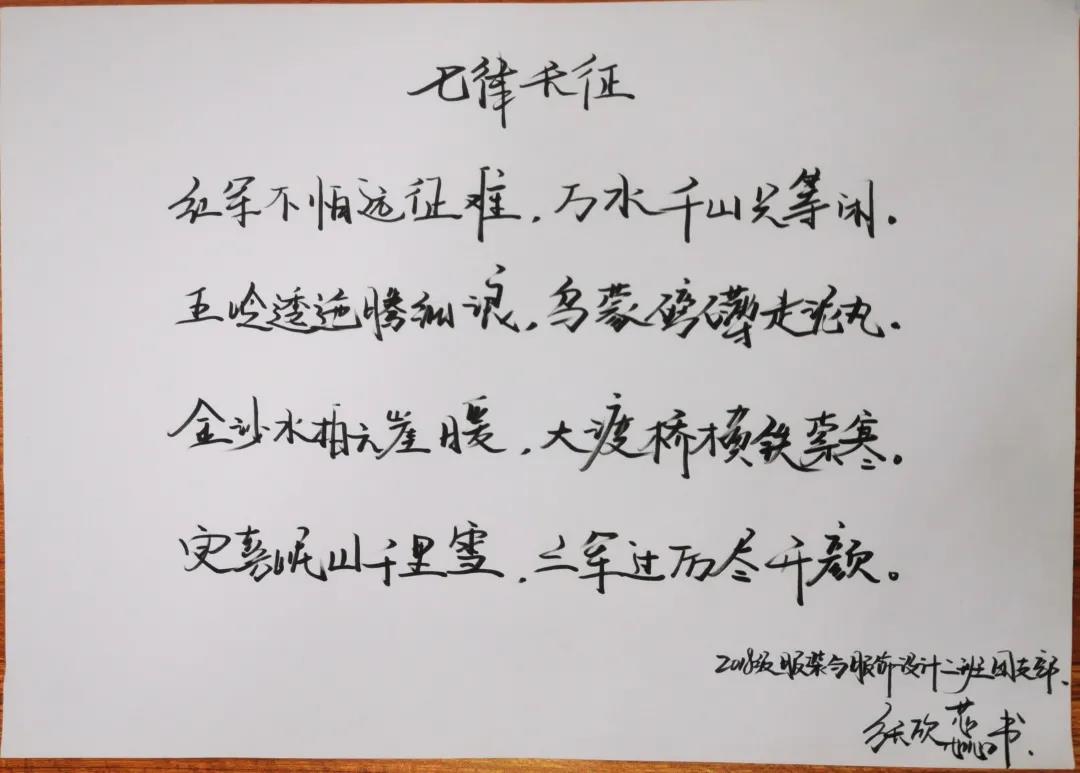 七律长征
红军不怕远征难,万水千山只等闲。
五岭逶迤腾细浪,乌蒙磅礴走泥丸。
金沙水拍云崖暖,大渡桥横铁索寒。
更喜岷山千里雪,三军过后尽开颜。
2018级服装与服饰设计二班团支部、
张欣蕊书.